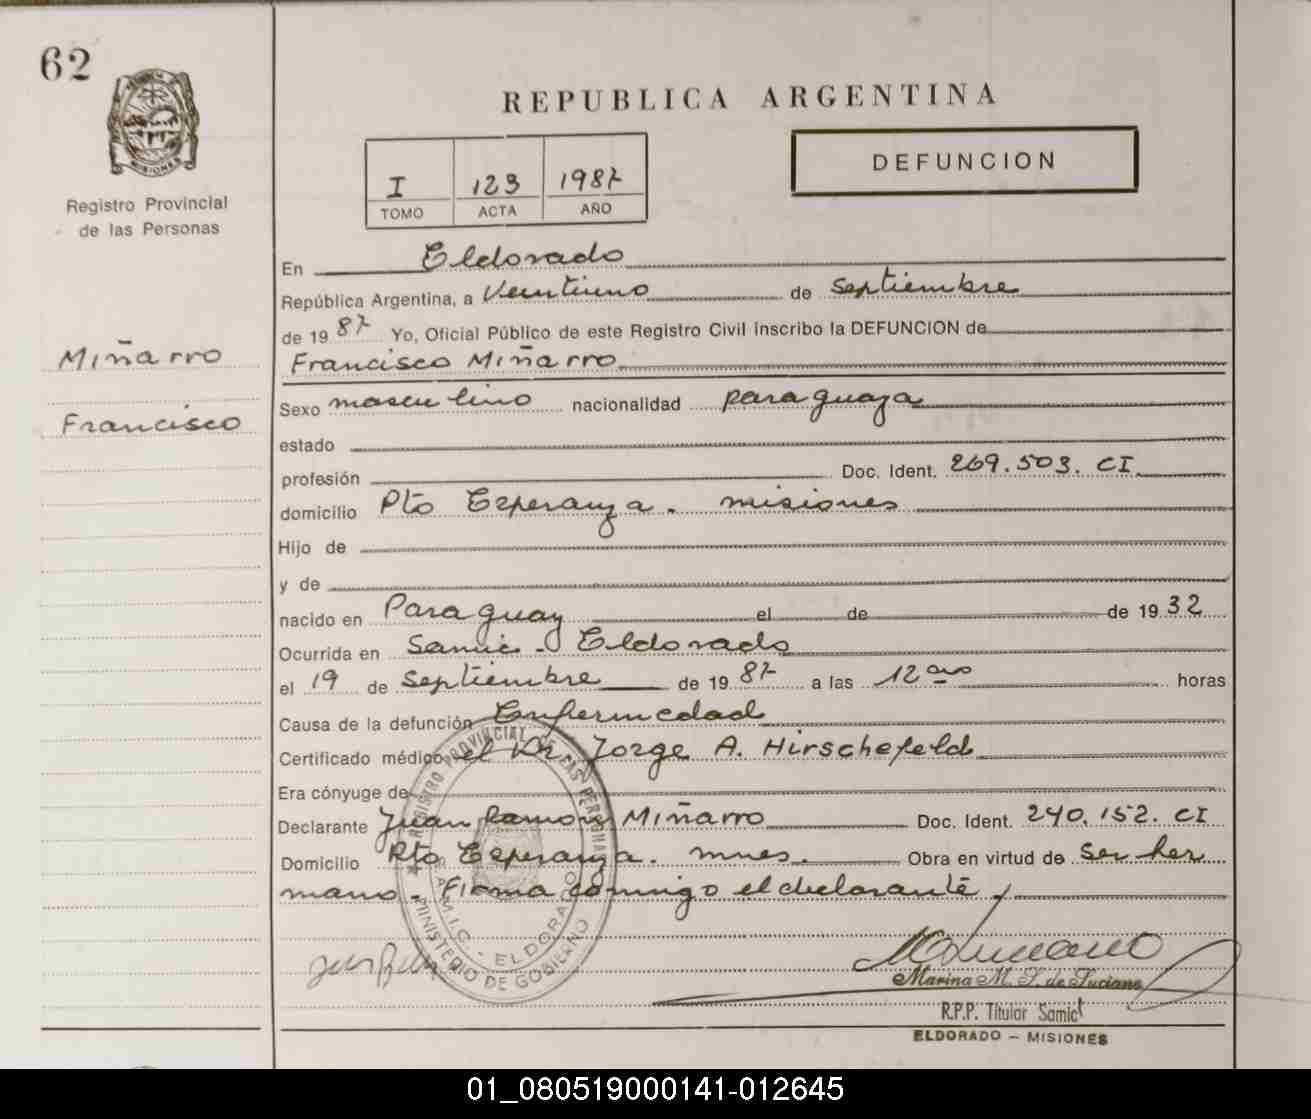 62
MISIONES
Registro Provincial
de las Personas
Miñarro
Francisco
REPUBLICA ARGENTINA
I 123 1987
TOMO ACTA AÑO
DEFUNCION
En Eldorado
República Argentina, a Veintiuno de Septiembre
de 1987 Yo, Oficial Público de este Registro Civil inscribo la DEFUNCION de
Francisco Miñarro
Sexo masculino nacionalidad paraguaya
estado
profesión Doc. Ident. 269.503. CI
domicilio Pto Esperanza. misiones
Hijo de
y de
nacido en Paraguay el de de 1932
Ocurrida en Samic - Eldorado
el 19 de Septiembre de 1987 a las 12 horas
Causa de la defunción Enfermedad
Certificado médico el Dr. Jorge A. Hirschefeld
Era cónyuge de
Declarante Juan Ramon Miñarro Doc. Ident. 240.152. CI
Domicilio Pto Esperanza. mnes. Obra en virtud de Ser her
mano. Firma conmigo el declarante
REGISTRO PROVINCIAL DE LAS PERSONAS
S.A.M.I.C. - ELDORADO
MINISTERIO DE GOBIERNO
Marina M. S. de Luciano
R.P.P. Titular Samic
ELDORADO - MISIONES
01_080519000141-012645